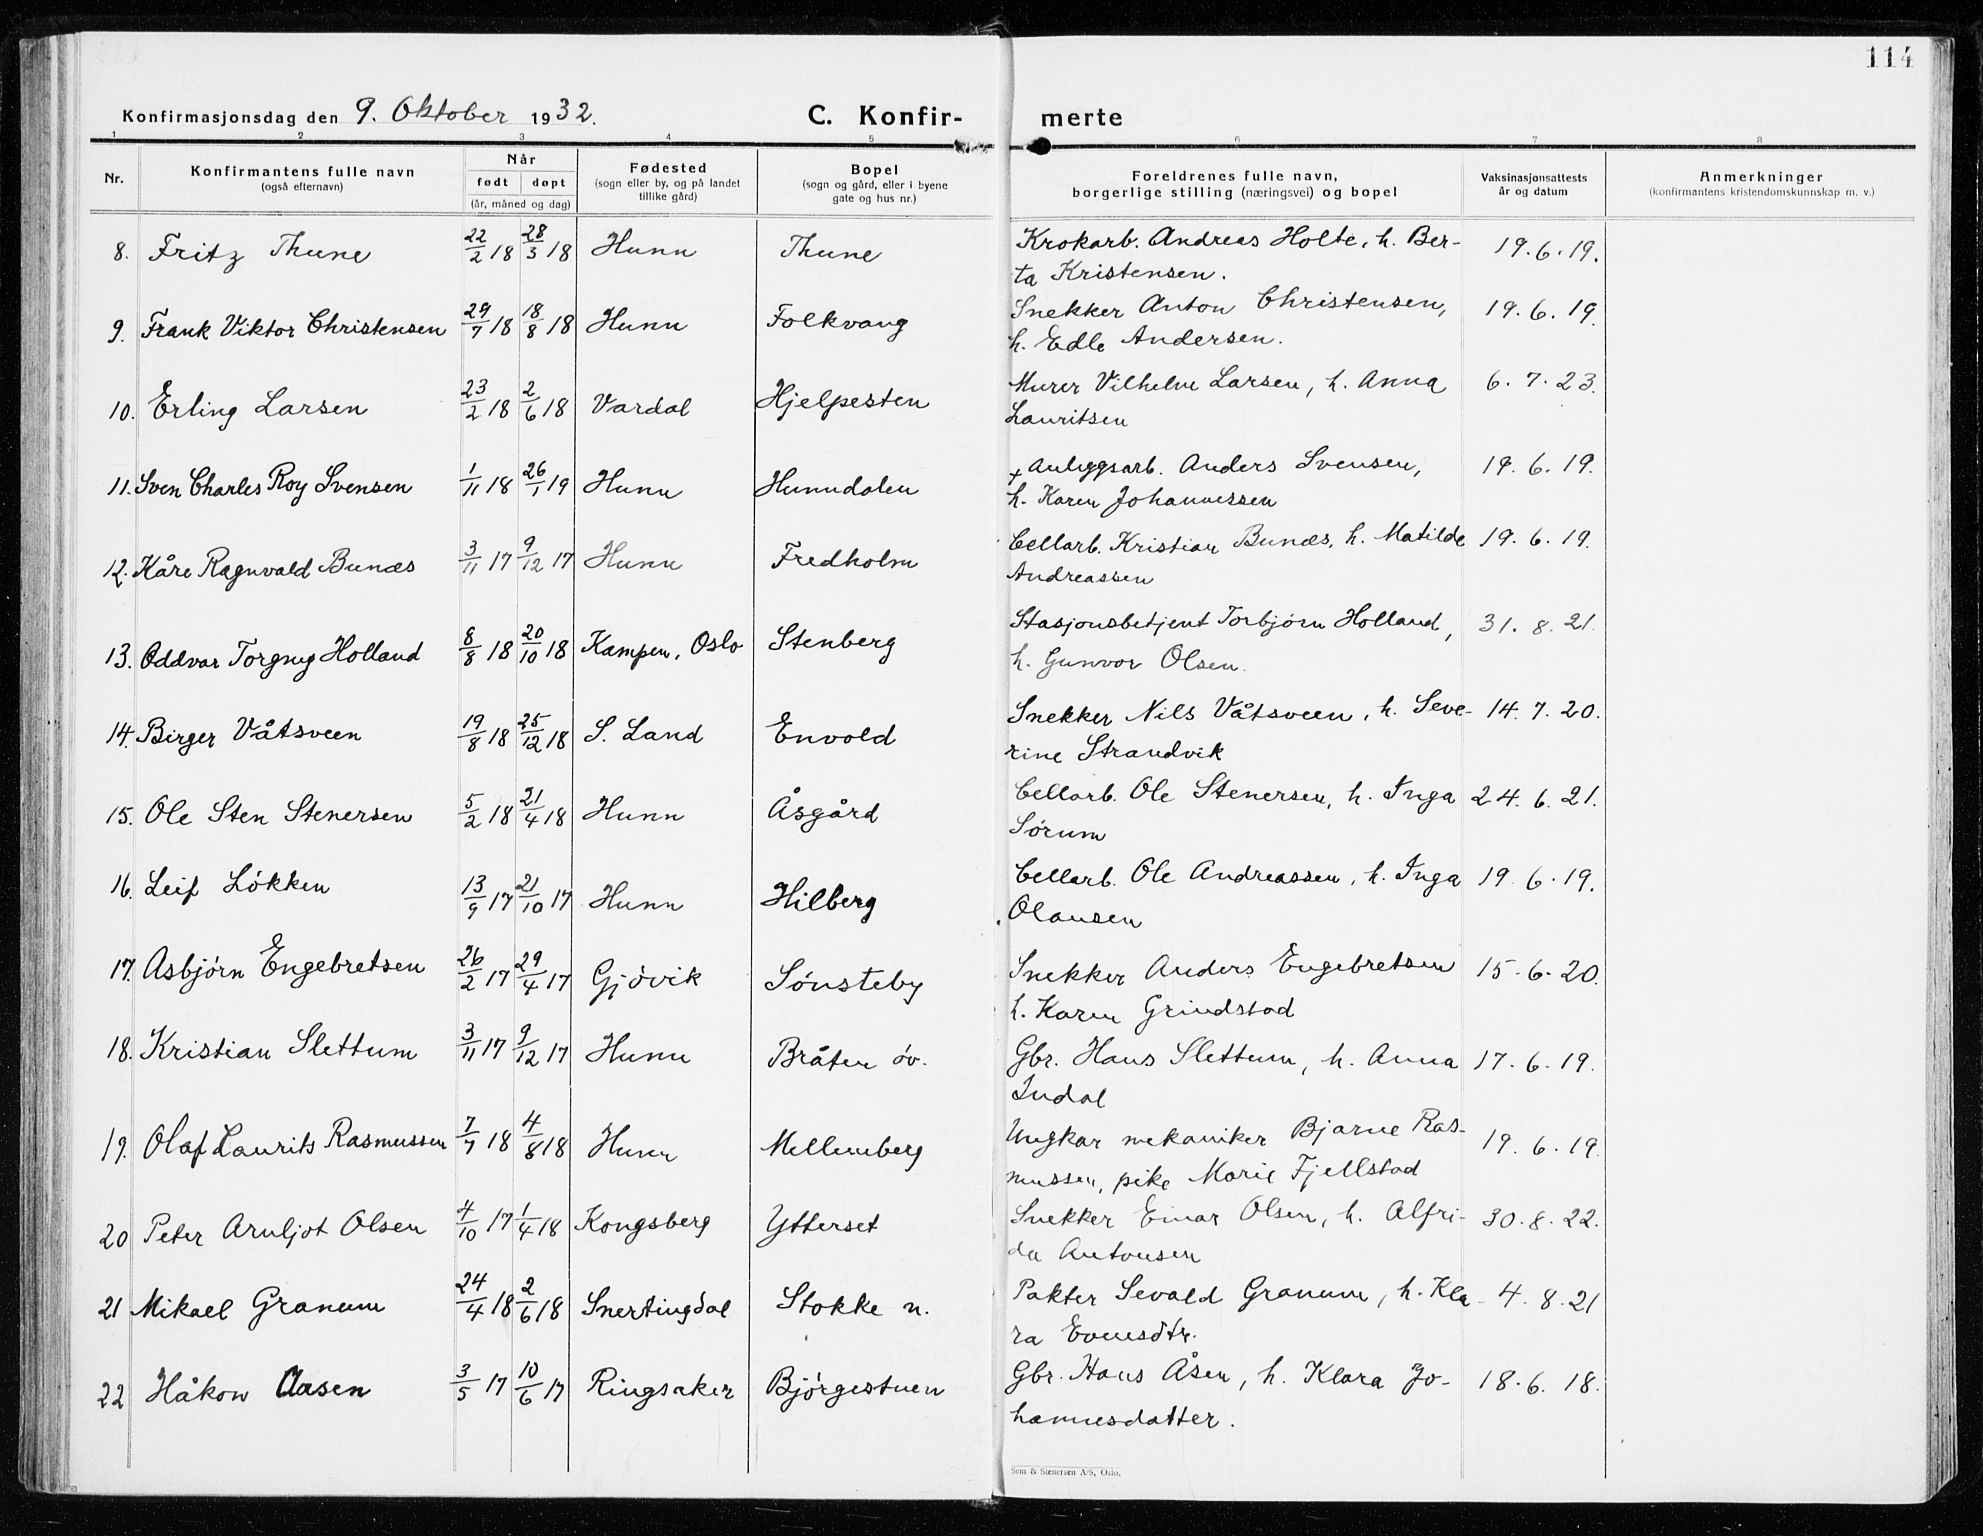 114
Konfirmasjonsdag den 9. Oktober 1932. C. Konfir- merte
1 2 3 4 5 6 7 8
Nr. Konfirmantens fulle navn (også efternavn) Når født døpt (år, måned og dag) Fødested (sogn eller by, og på landet tillike gård) Bopel (sogn og gård, eller i byene gate og hus nr.) Foreldrenes fulle navn, borgerlige stilling (næringsvei) og bopel Vaksinasjonsattests år og datum Anmerkninger (konfirmantens kristendomskunnskap m. v.)
8. Fritz Thune 22/2 18 28/3 18 Hunn Thune Krokarb. Andreas Holte, h. Ber- 19.6.19.
ta Kristensen.
9. Frank Viktor Christensen 29/7 18 18/8 18 Hunn Folkvang Snekker Anton Christensen, 19.6.19.
h. Edle Andersen.
10. Erling Larsen 23/2 18 2/6 18 Vardal Hjelpesten Murer Vilhelm Larsen, h. Anna 6.7.23.
Lauritsen
11. Sven Charles Roy Svensen 1/11 18 26/1 19 Hunn Hunndalen + Anleggsarb. Anders Svensen, 19.6.19.
h. Karen Johannessen
12. Kåre Ragnvald Bunæs 3/11 17 9/12 17 Hunn Fredholm Cellarb. Kristian Bunæs, h. Matilde 19.6.19.
Andreassen
13. Oddvar Torgny Holland 8/8 18 20/10 18 Kampen, Oslo Stenberg Stasjonsbetjent Torbjørn Holland, 31.8.21.
h. Gunvor Olsen.
14. Birger Våtsveen 19/8 18 25/12 18 S. Land Envold Snekker Nils Våtsveen, h. Seve- 14.7.20.
rine Strandvik
15. Ole Sten Stenersen 5/2 18 21/4 18 Hunn Åsgård Cellarb. Ole Stenersen, h. Inga 24.6.21.
Sørum
16. Leif Løkken 13/9 17 21/10 17 Hunn Hilberg Cellarb. Ole Andreassen, h. Inga 19.6.19.
Olausen
17. Asbjørn Engebretsen 26/2 17 29/4 17 Gjøvik Sønsteby Snekker Anders Engebretsen 15.6.20.
h. Karen Grindstad
18. Kristian Slettum 3/11 17 9/12 17 Hunn Bråten øv. Gbr. Hans Slettum, h. Anna 17.6.19.
Indal
19. Olaf Laurits Rasmussen 7/7 18 4/8 18 Hunn Mellumberg Ungkar mekaniker Bjarne Ras- 19.6.19.
mussen, pike Marie Fjellstad
20 Peter Arnljot Olsen 4/10 17 1/4 18 Kongsberg Ytterset Snekker Einar Olsen, h. Alfri- 30.8.22.
da Antonsen
21 Mikael Granum 24/4 18 2/6 18 Snertingdal Stokke n. Pakter Sevald Granum, h. Kla- 4.8.21
ra Evensdtr.
22 Håkon Aasen 3/5 17 10/6 17 Ringsaker Bjørgestuen Gbr. Hans Åsen, h. Klara Jo- 18.6.18.
hannesdatter.
Sem & Stenersen A/S, Oslo.